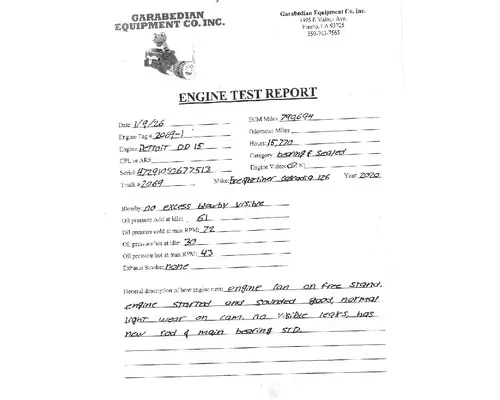 GARABEDIAN
EQUIPMENT CO. INC.
Garabedian Equipment Co. Inc.
Fresno, CA 93725
ENGINE TEST REPORT
Date: 1/9/26
ECM Miles: 740694
Engine Tag# 2069-1
Odometer Miles:
Engine: Detroit DD 15
Hours: 15,220
CPL or AR#:
Category: bearing & Sealed
Serial#
Engine Video:
Truck# 2069
Make: Freightliner Cascadia 126 Year 2020
Blowby: no excess blowby visible
Oil pressure cold at idle: 61
Oil pressure cold at max RPM: 72
Oil pressure hot at idle: 30
Oil pressure hot at max RPM: 43
Exhaust Smoke: none
General description of how engine runs: engine ran on free stand.
engine started and sounded good, normal
light wear on cam. no visible leaks, has
new rod & main bearing STD.